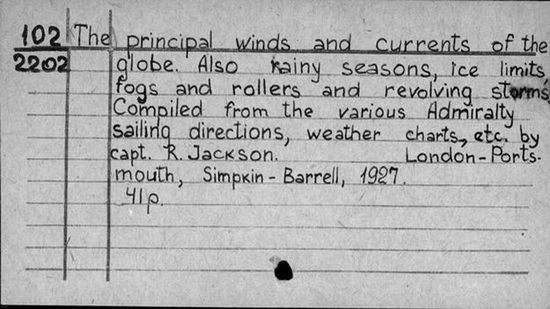 102 The principal winds and currents of the
2202 globe. Also rainy seasons, ice limits,
fogs and rollers and revolving storms.
Compiled from the various Admiralty
sailing directions, weather charts, etc. by
capt. R. Jackson. London-Ports-
mouth, Simpkin-Barrell, 1927.
41p.